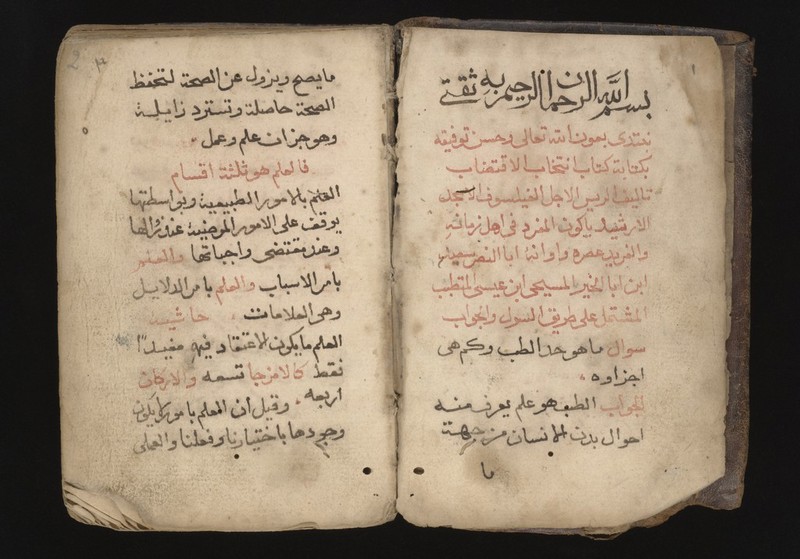 1
بسم الله الرحمان الرحيم به ثقتي
نبتدى بعون الله تعالى وحسن توفيقه
بكتابة كتاب انتخاب الاقتضاب
تاليف الريس الاجل الفيلسوف الامجد
الارشيدياكون المفرد فى اهل زمانه
والفريد عصره واوانه ابا النصر سعيد
ابن ابا الخير المسيحى ابن عيسى المتطبب
المشتمل على طريق السول والجواب
سوال ما هو حد الطب وكم هى
اجزاوه
الجواب الطب هو علم يعرف منه
احوال بدن الانسان من جهة
ما
2
ما يصح ويزول عن الصحة لتحفظ
الصحة حاصلة وتسترد زايلة
وهو جزان علم وعمل
فالعلم هو ثلثة اقسام
العلم بالامور الطبيعية وبواسطتها
يوقف على الامور المرضية عند زوالها
وعند مقتضى واجباتها والعلم
بامر الاسباب والعلم بامر الدلايل
وهى العلامات حاشية
العلم ما يكون الاعتقاد فيه مفيدًا
فقط كالامزجا تسعه والاركان
اربعه وقيل ان العلم بامور لا يكون
وجودها باختيارنا وفعلنا والعملى